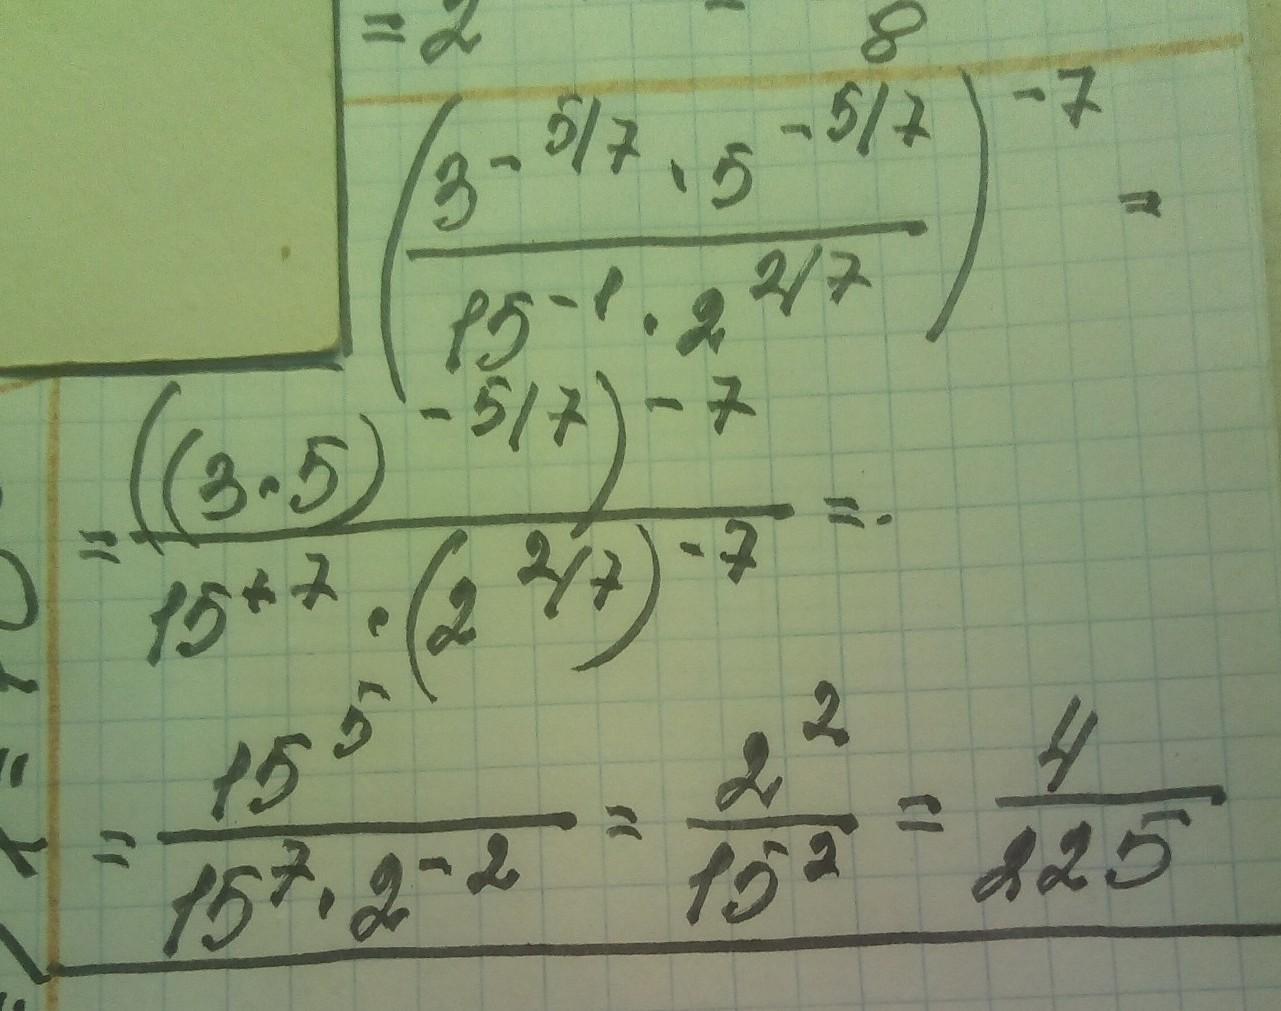 = 2 - 8
(3^{-5/7} · 5^{-5/7} / 15^{-1} · 2^{2/7})^{-7} =
= ((3·5)^{-5/7})^{-7} / 15^{+7} · (2^{2/7})^{-7} =
= 15^5 / 15^7 · 2^{-2} = 2^2 / 15^2 = 4 / 225